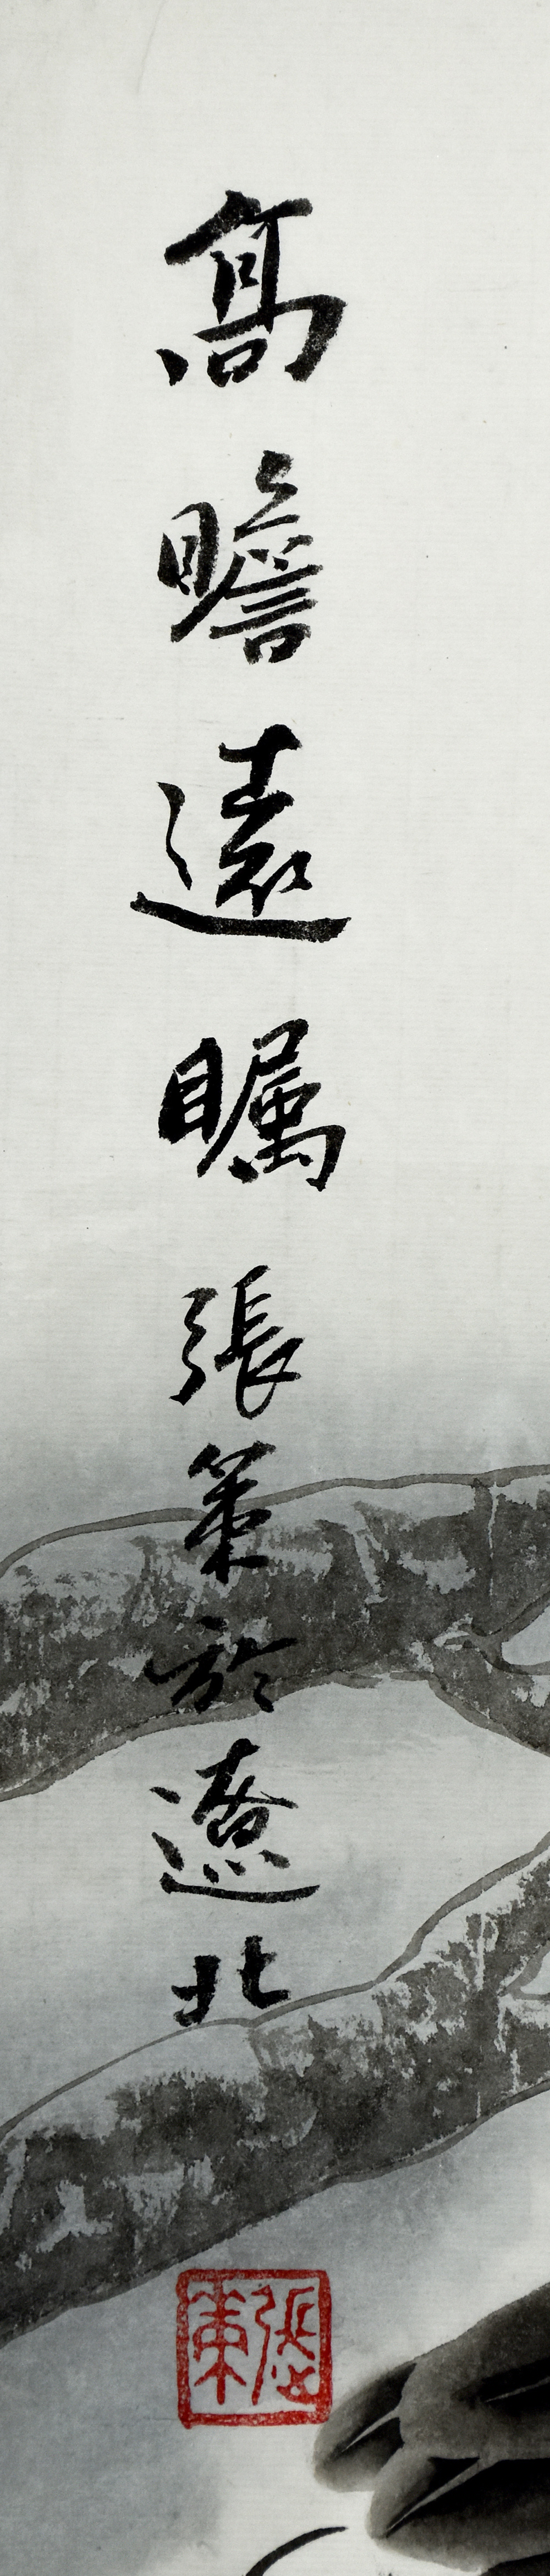 高瞻遠瞩張策於遼北
張策